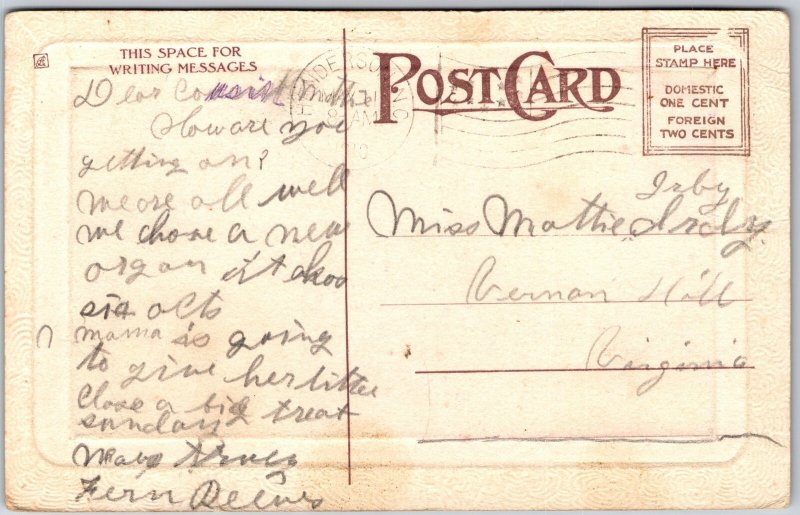 THIS SPACE FOR
WRITING MESSAGES
POST CARD
PLACE
STAMP HERE
DOMESTIC
ONE CENT
FOREIGN
TWO CENTS
AM
Dear Cousin
How are you
getting on?
we are all well
we have a new
organ it
six octs
mama is going
to give her little
Class a big treat
sunday
Fern Reeves
Irby
Miss Mattie Irby
Vernon Hill
Virginia